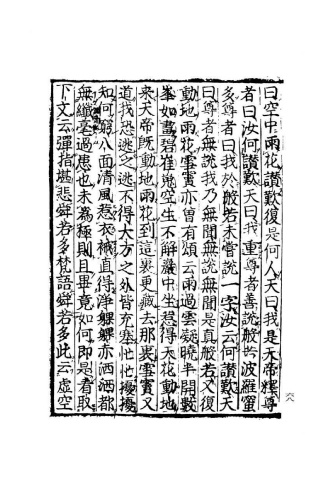 曰空中雨花讃歎復是何人天曰我是天帝釋尊
者曰汝何讃歎天曰我重尊者善說般若波羅蜜
多尊者曰我於般若未甞說一字汝云何讃歎天
曰尊者無說我乃無聞無說無聞是真般若又復
動地雨花雪竇亦曾有頌云雨過雲凝曉半開數
峯如畫碧崔嵬空生不解巖中坐惹得天花動地
來天帝既動地雨花到這裏更藏去那裏雪竇又
道我恐逃之逃不得大方之外皆充塞忙忙擾擾
知何窮八面清風惹衣裓直得淨躶躶赤洒洒都
無纖毫過患也未為極則且畢竟如何即是看取
下文云彈指堪悲舜若多梵語舜若多此云虛空
六八